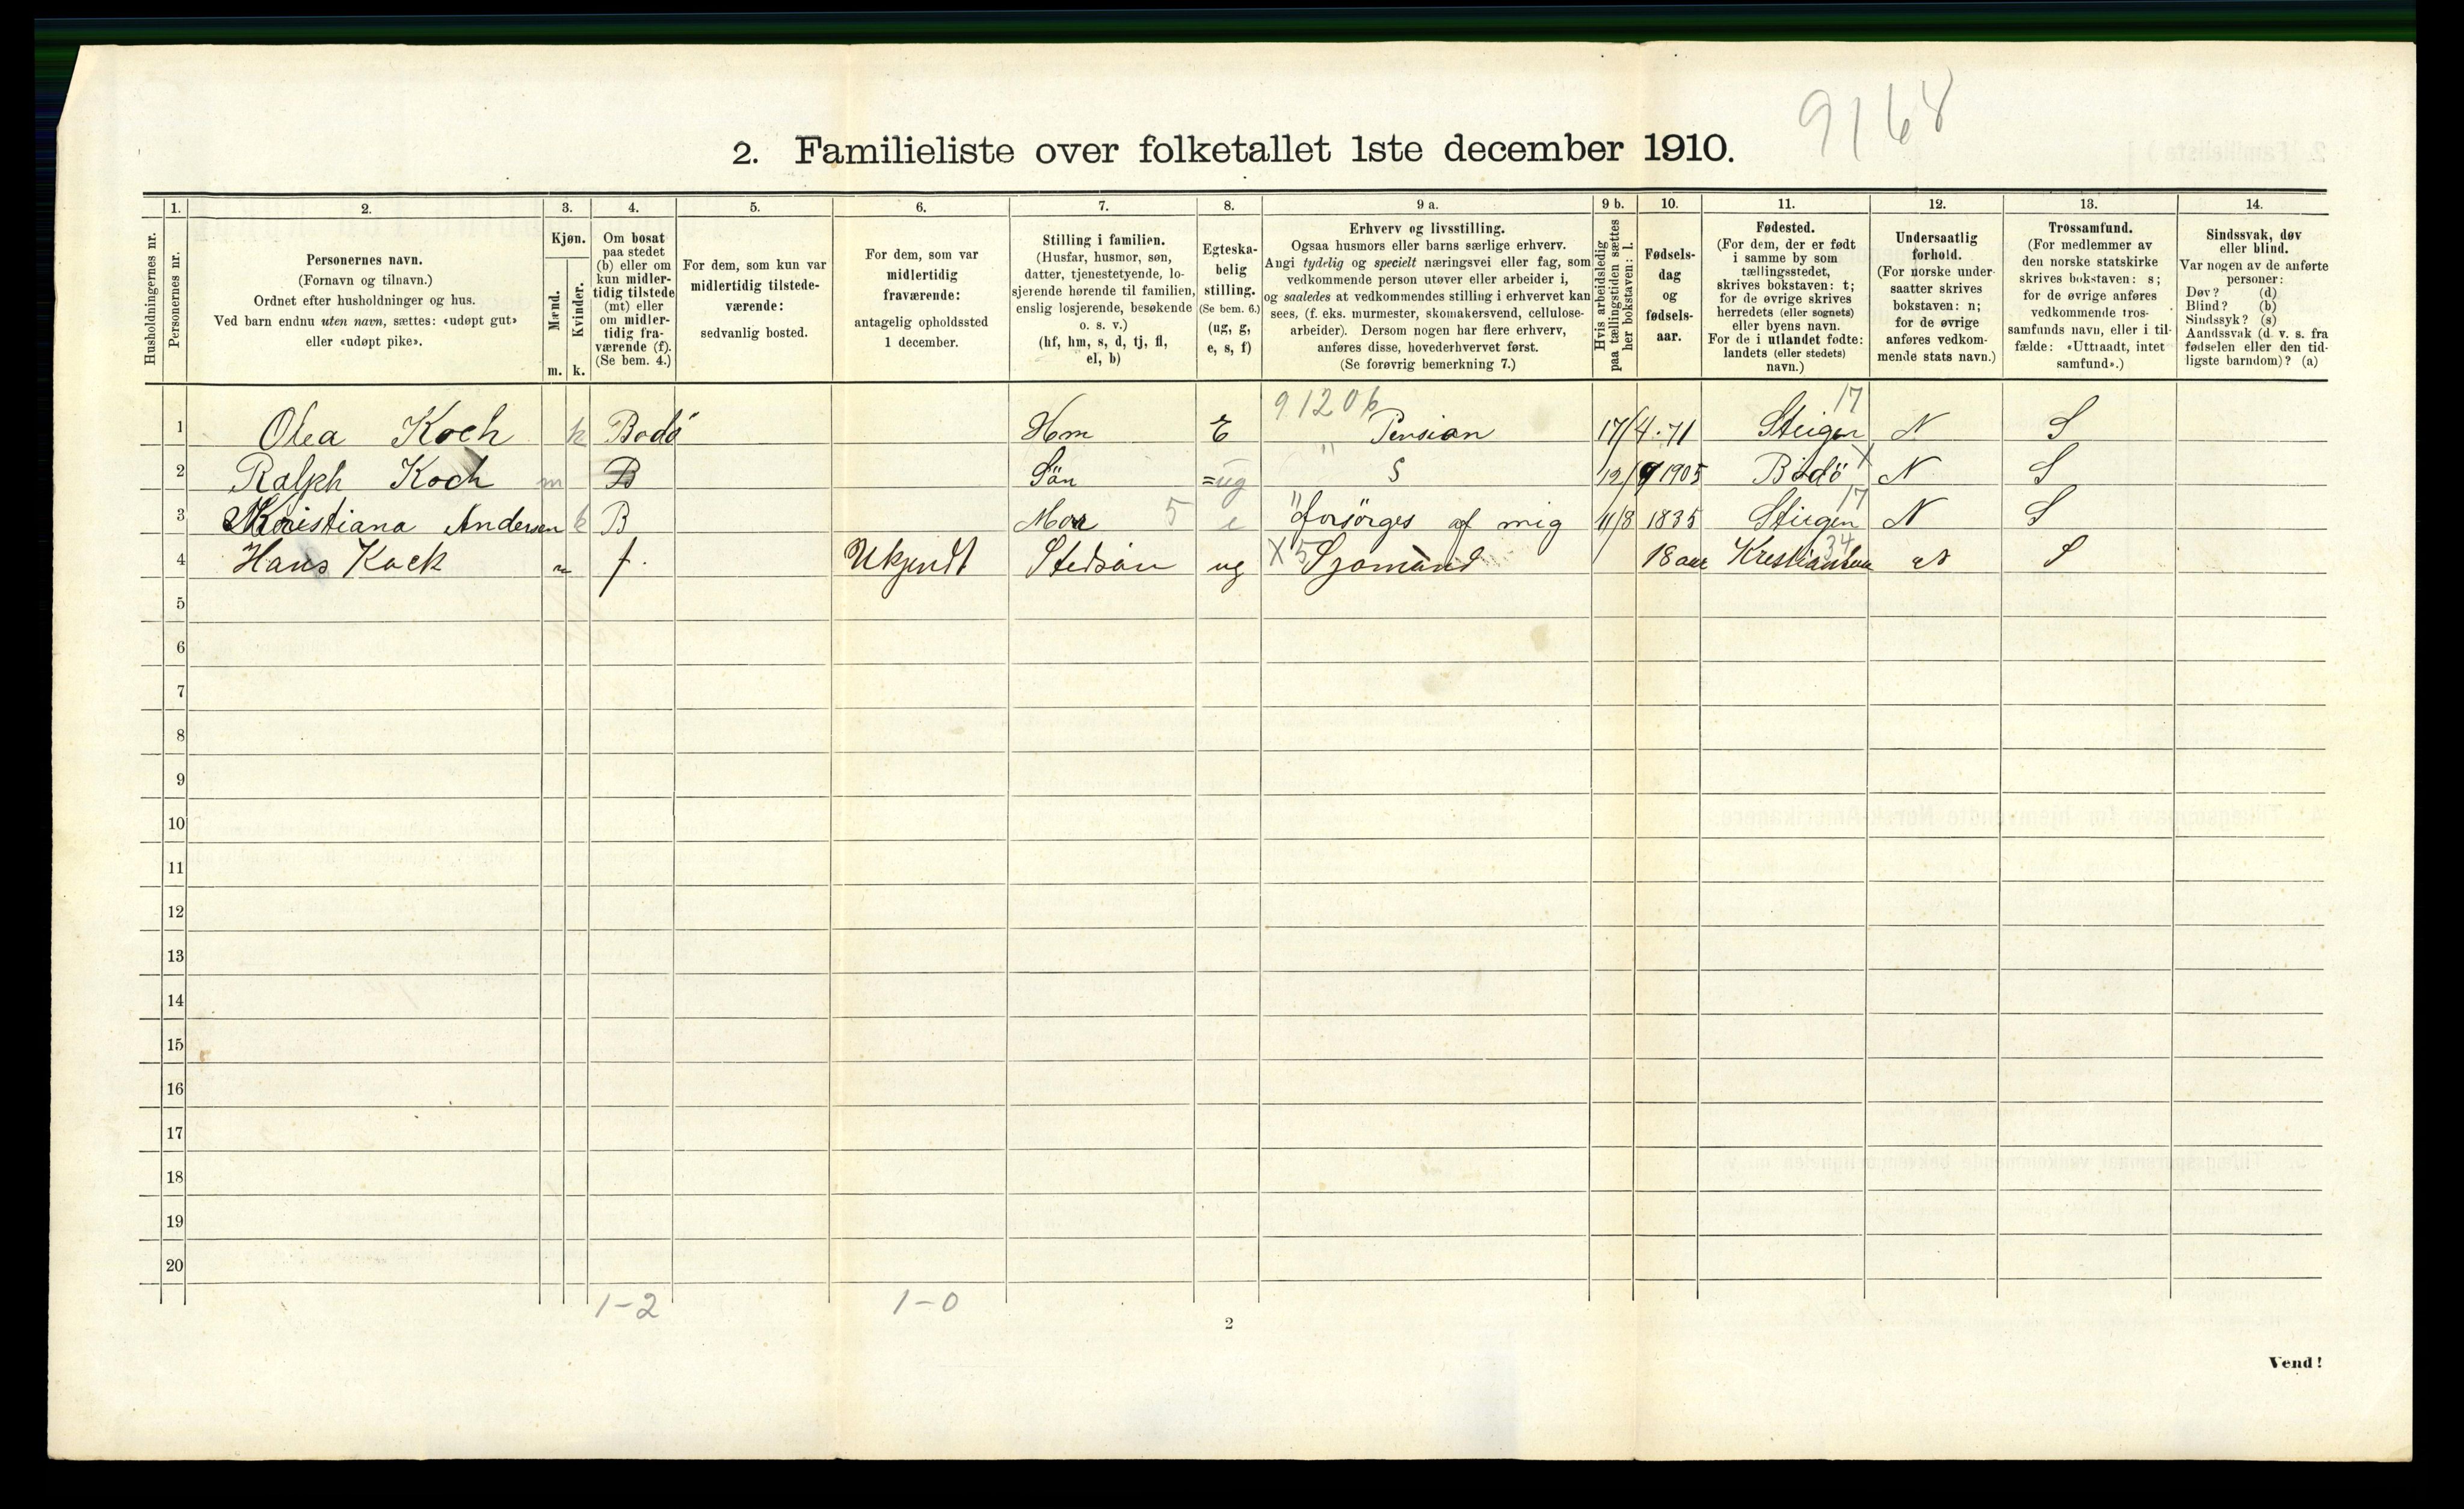 9168
2. Familieliste over folketallet 1ste december 1910.
1. 2. 3. 4. 5. 6. 7. 8. 9 a. 9 b. 10. 11. 12. 13. 14.
Husholdningernes nr.
Personernes nr.
Personernes navn.
(Fornavn og tilnavn.)
Ordnet efter husholdninger og hus.
Ved barn endnu uten navn, sættes: «udøpt gut»
eller «udøpt pike».
Kjøn.
Mænd.
Kvinder.
m. k.
Om bosat
paa stedet
(b) eller om
kun midler-
tidig tilstede
(mt) eller
om midler-
tidig fra-
værende (f).
(Se bem. 4.)
For dem, som kun var
midlertidig tilstede-
værende:
sedvanlig bosted.
For dem, som var
midlertidig
fraværende:
antagelig opholdssted
1 december.
Stilling i familien.
(Husfar, husmor, søn,
datter, tjenestetyende, lo-
sjerende hørende til familien,
enslig losjerende, besøkende
o. s. v.)
(hf, hm, s, d, tj, fl,
el, b)
Egteska-
belig
stilling.
(Se bem. 6.)
(ug, g,
e, s, f)
Erhverv og livsstilling.
Ogsaa husmors eller barns særlige erhverv.
Angi tydelig og specielt næringsvei eller fag, som
vedkommende person utøver eller arbeider i,
og saaledes at vedkommendes stilling i erhvervet kan
sees, (f. eks. murmester, skomakersvend, cellulose-
arbeider). Dersom nogen har flere erhverv,
anføres disse, hovederhvervet først.
(Se forøvrig bemerkning 7.)
Hvis arbeidsledig
paa tællingstiden sættes
her bokstaven: l.
Fødsels-
dag
og
fødsels-
aar.
Fødested.
(For dem, der er født
i samme by som
tællingsstedet,
skrives bokstaven: t;
for de øvrige skrives
herredets (eller sognets)
eller byens navn.
For de i utlandet fødte:
landets (eller stedets)
navn.)
Undersaatlig
forhold.
(For norske under-
saatter skrives
bokstaven: n;
for de øvrige
anføres vedkom-
mende stats navn.)
Trossamfund.
(For medlemmer av
den norske statskirke
skrives bokstaven: s;
for de øvrige anføres
vedkommende tros-
samfunds navn, eller i til-
fælde: «Uttraadt, intet
samfund».)
Sindssvak, døv
eller blind.
Var nogen av de anførte
personer:
Døv? (d)
Blind? (b)
Sindssyk? (s)
Aandssvak (d. v. s. fra
fødselen eller den tid-
ligste barndom)? (a)
9120b 17
1 Olea Koch k Bodö Hm E Pension 17/4-71 Steigen N S
2 Ralph Koch m B Sön = ug " S 12/9 1905 Bodö X N S
3 Kristiana Andersen k B Mor 5 e " forsörges af mig 11/8 1835 Steigen 17 N S
4 Hans Kock m f. Ukjendt Stedsön ug X5 Sjomand 18 aar 34 S
5
6
7
8
9
10
11
12
13
14
15
16
17
18
19
20
1-2 1-0
2
Vend!